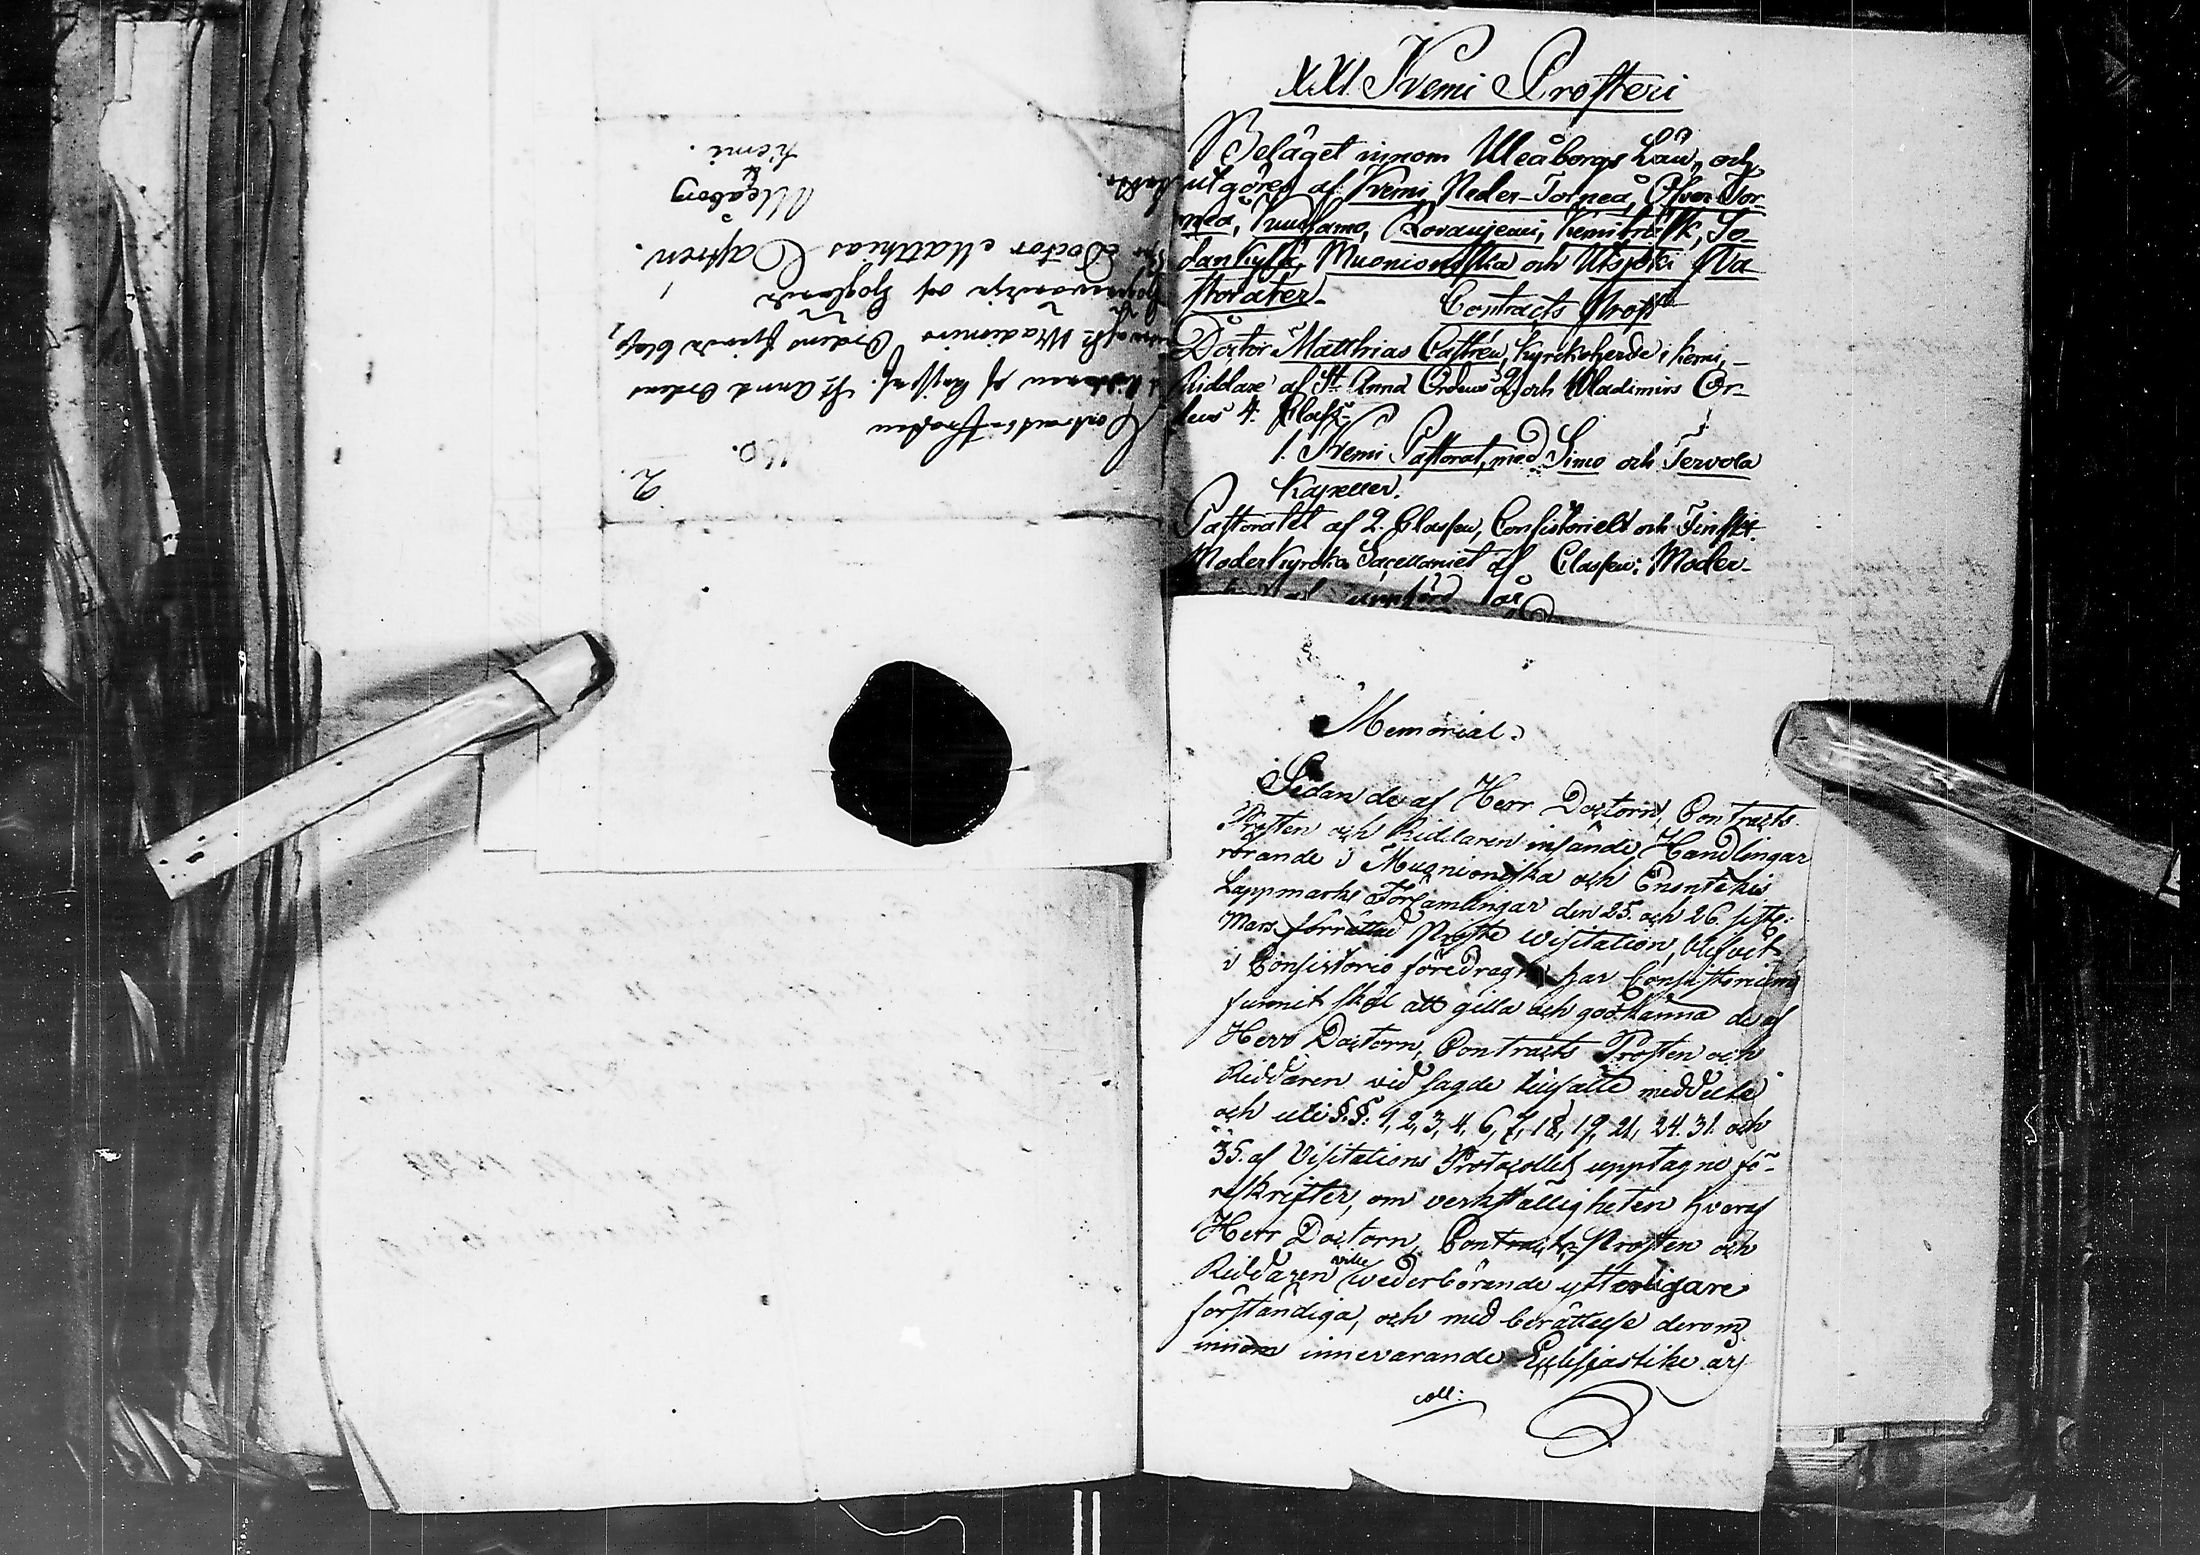 XXI. Kemi Prosteri
Beläget innom Uleåborgs Län, och
utgöres af Kemi, Neder-Torneå, Öfver-Tor-
neå, Kuusamo, Rovaniemi, Kemiträsk, So-
dankylä, Muonioniska och Utsjoki Pa-
storater.
Contracts Prost
Doctor Matthias Castrén, Kyrkoherde i Kemi,
Riddare af St. Anna Ordens 2. och Wladimirs Or-
dens 4. Class.
1. Kemi Pastorat, med Simo och Tervola
Kapeller.
Pastoratet af 2. Classen, Consistorielt och Finskt.
Moderkyrko Sacellaniet af Classen; Moder-
uppförd år
Contracts-Prosten
Riddaren af Kejserl. St. Anna Ordens
Wladimirs Ordens fjerde Class,
Högvördige och Höglärde
Herr Doctor Matthias Castrén.
Uleåborg
&
Kemi.
2.
Memorial.
Sedan de af Herr Doctorn, Contracts
Prosten och Riddaren insände Handlingar
rörande i Muonioniska och Enontekis
Lappmarks Församlingar den 25. och 26. sistl:
Mars förrättad Prosте Visitation, blifvit
i Consistorio föredragne har Consistorium
funnit skäl att gilla och godkänna de af
Herr Doctorn, Contracts Prosten och
Riddaren vid sagde tillfälle meddelte
och uti §.§. 1, 2, 3, 4, 6, 7, 18, 19, 21, 24. 31. och
35. af Visitations Protocollet upptagne fö-
reskrifter, om verkställigheten hvaraf
Herr Doctorn, Contracts-Prosten och
Riddaren ville wederbörande ytterligare
förständiga, och med berättelse derom
innom innevarande Ecklesiastike år
coll: